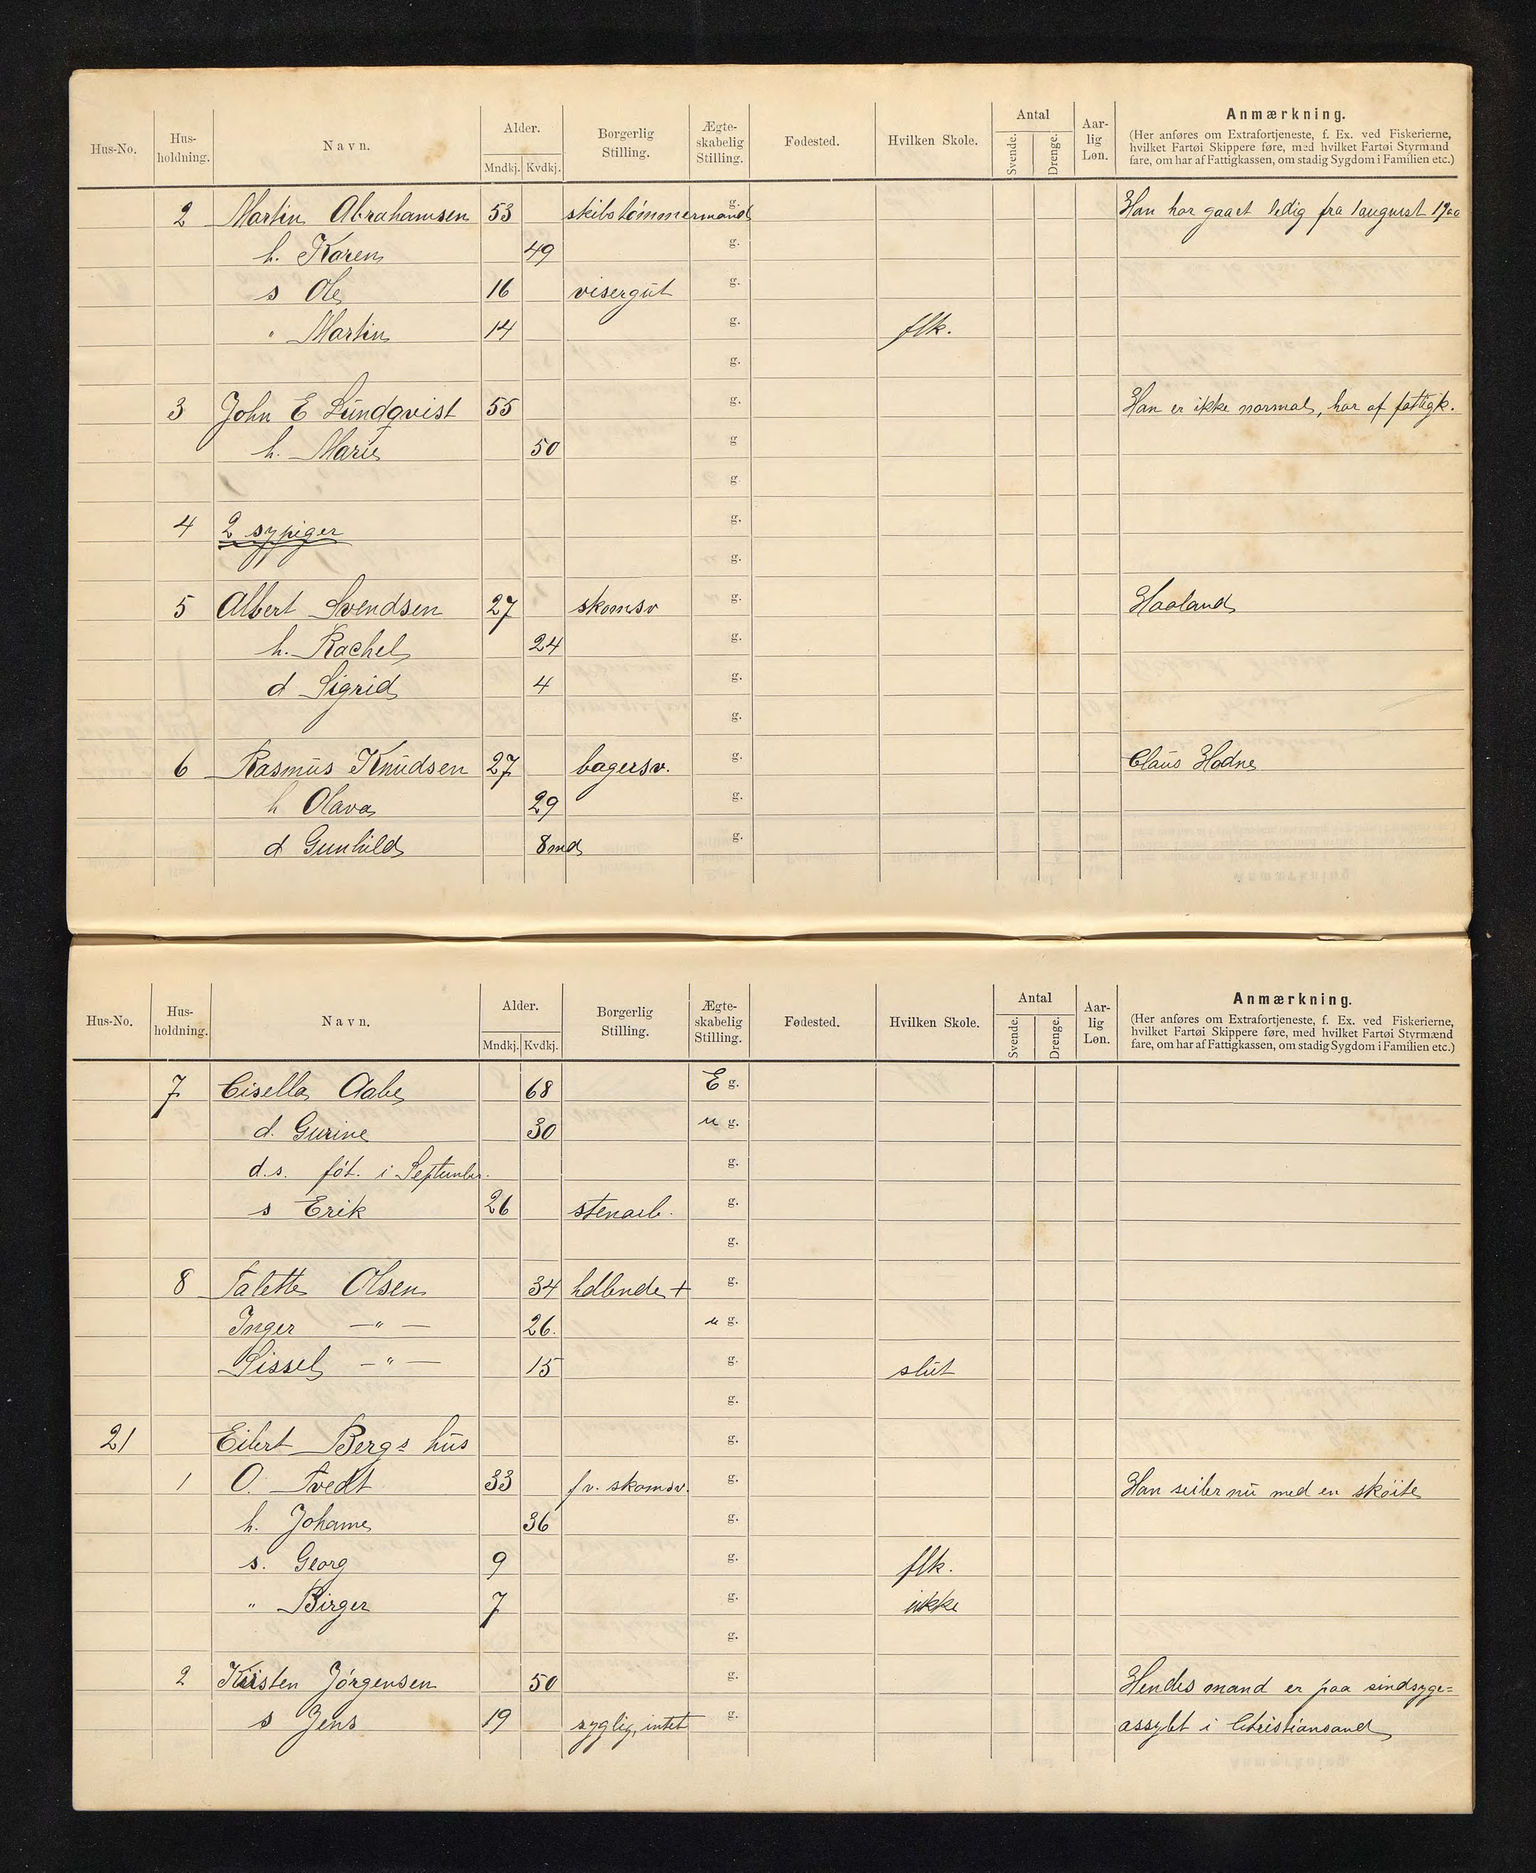 Hus-No. Hus-holdning. Navn. Alder. Mndkj. Kvdkj. Borgerlig Stilling. Ægte-skabelig Stilling. Fødested. Hvilken Skole. Antal Svende. Drenge. Aar-lig Løn. Anmærkning.
(Her anføres om Extrafortjeneste, f. Ex. ved Fiskerierne,
hvilket Fartøi Skippere føre, med hvilket Fartøi Styrmænd
fare, om har af Fattigkassen, om stadig Sygdom i Familien etc.)
2 Martin Abrahamsen 53 skibstömmermand g. Han har gaaet ledig fra 1 august 1900
h. Karen 49 g.
s Ole 16 visergut g.
" Martin 14 g. flk.
g.
3 John E Lundqvist 55 g. Han er ikke normal, har af fattigk.
h. Marie 50 g
g.
4 2 sypiger g.
g.
5 Albert Svendsen 27 skomsv g. Haaland
h. Rachel 24 g.
d Sigrid 4 g.
g.
6 Rasmus Knudsen 27 bagersv. g. Claus Hodne
h Olava 29 g.
d Gunhild 8 md g.
Hus-No. Hus-holdning. Navn. Alder. Mndkj. Kvdkj. Borgerlig Stilling. Ægte-skabelig Stilling. Fødested. Hvilken Skole. Antal Svende. Drenge. Aar-lig Løn. Anmærkning.
(Her anføres om Extrafortjeneste, f. Ex. ved Fiskerierne,
hvilket Fartøi Skippere føre, med hvilket Fartøi Styrmænd
fare, om har af Fattigkassen, om stadig Sygdom i Familien etc.)
7 Cisella Aabe 68 E g.
d. Gurine 30 u g.
d.s. föt. i September. g.
s Erik 26 stenarb. g.
g.
8 Talette Olsen 34 hdlende + g.
Inger — " — 26. u g.
Sissel — " — 15 g. slut
g.
21 Eilert Bergs hus g.
1 O. Tvedt 33 fv. skomsv. g. Han seiler nu med en sköite
h. Johanne 36 g.
s. Georg 9 g. flk.
" Birger 7 g. ikke
g.
2 Kirsten Jörgensen 50 g. Hendes mand er paa sindsyge=
s Jens 19 syglig, intet g. assylet i Christiansand